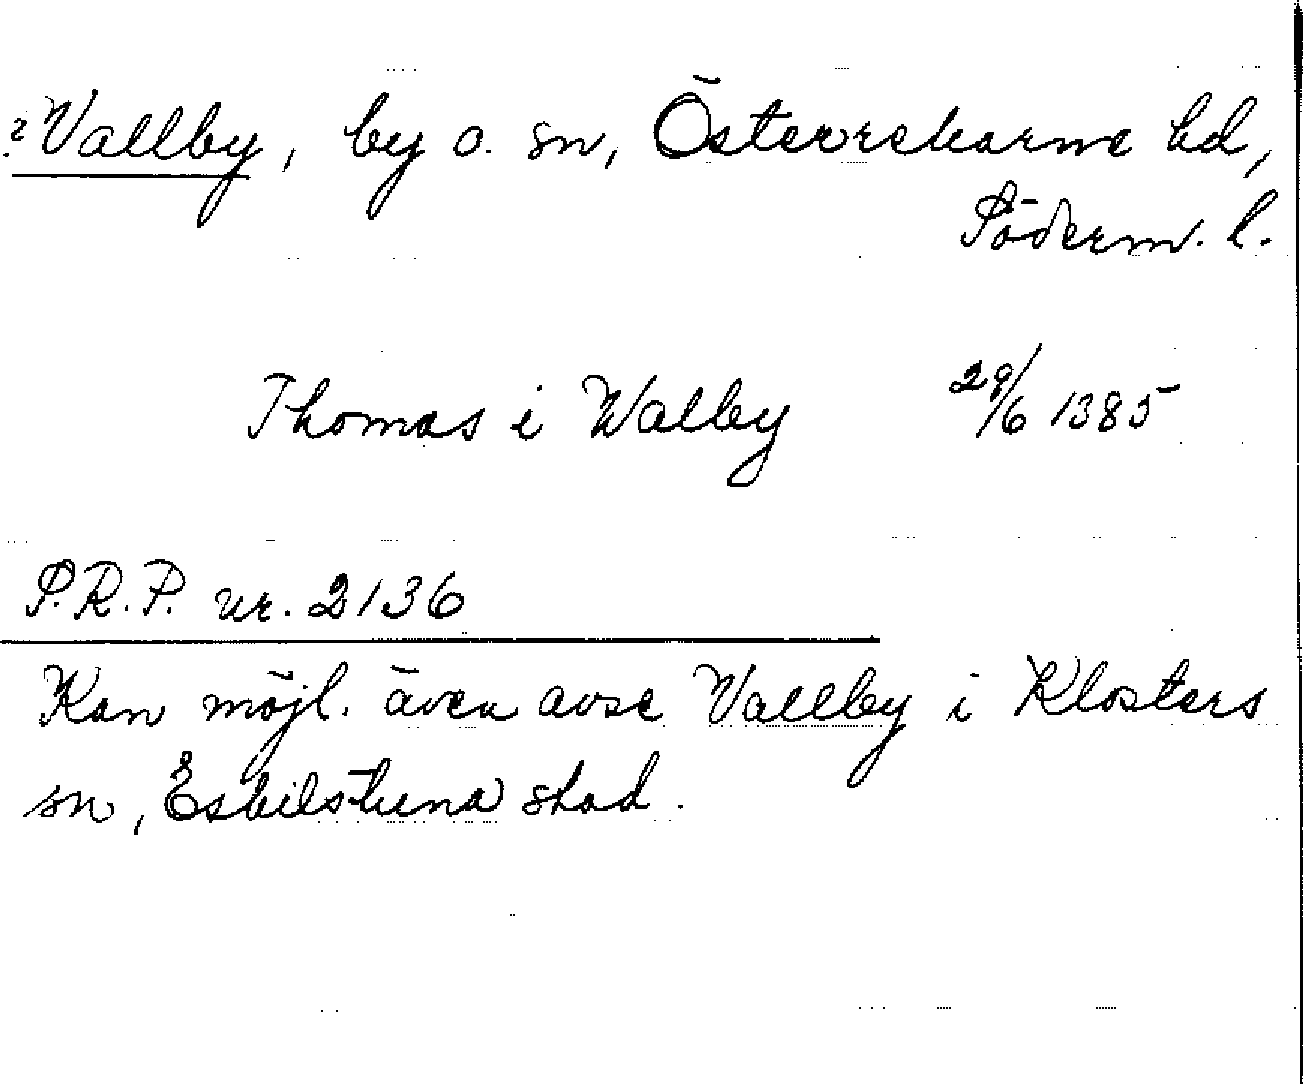 ? Vallby, by o. sn, Österrekarne hd,
Söderm. l.
Thomas i Walby 29/6 1385
S.R.P. nr. 2136
Kan möjl. även avse Vallby i Klosters
sn, Eskilstuna stad.